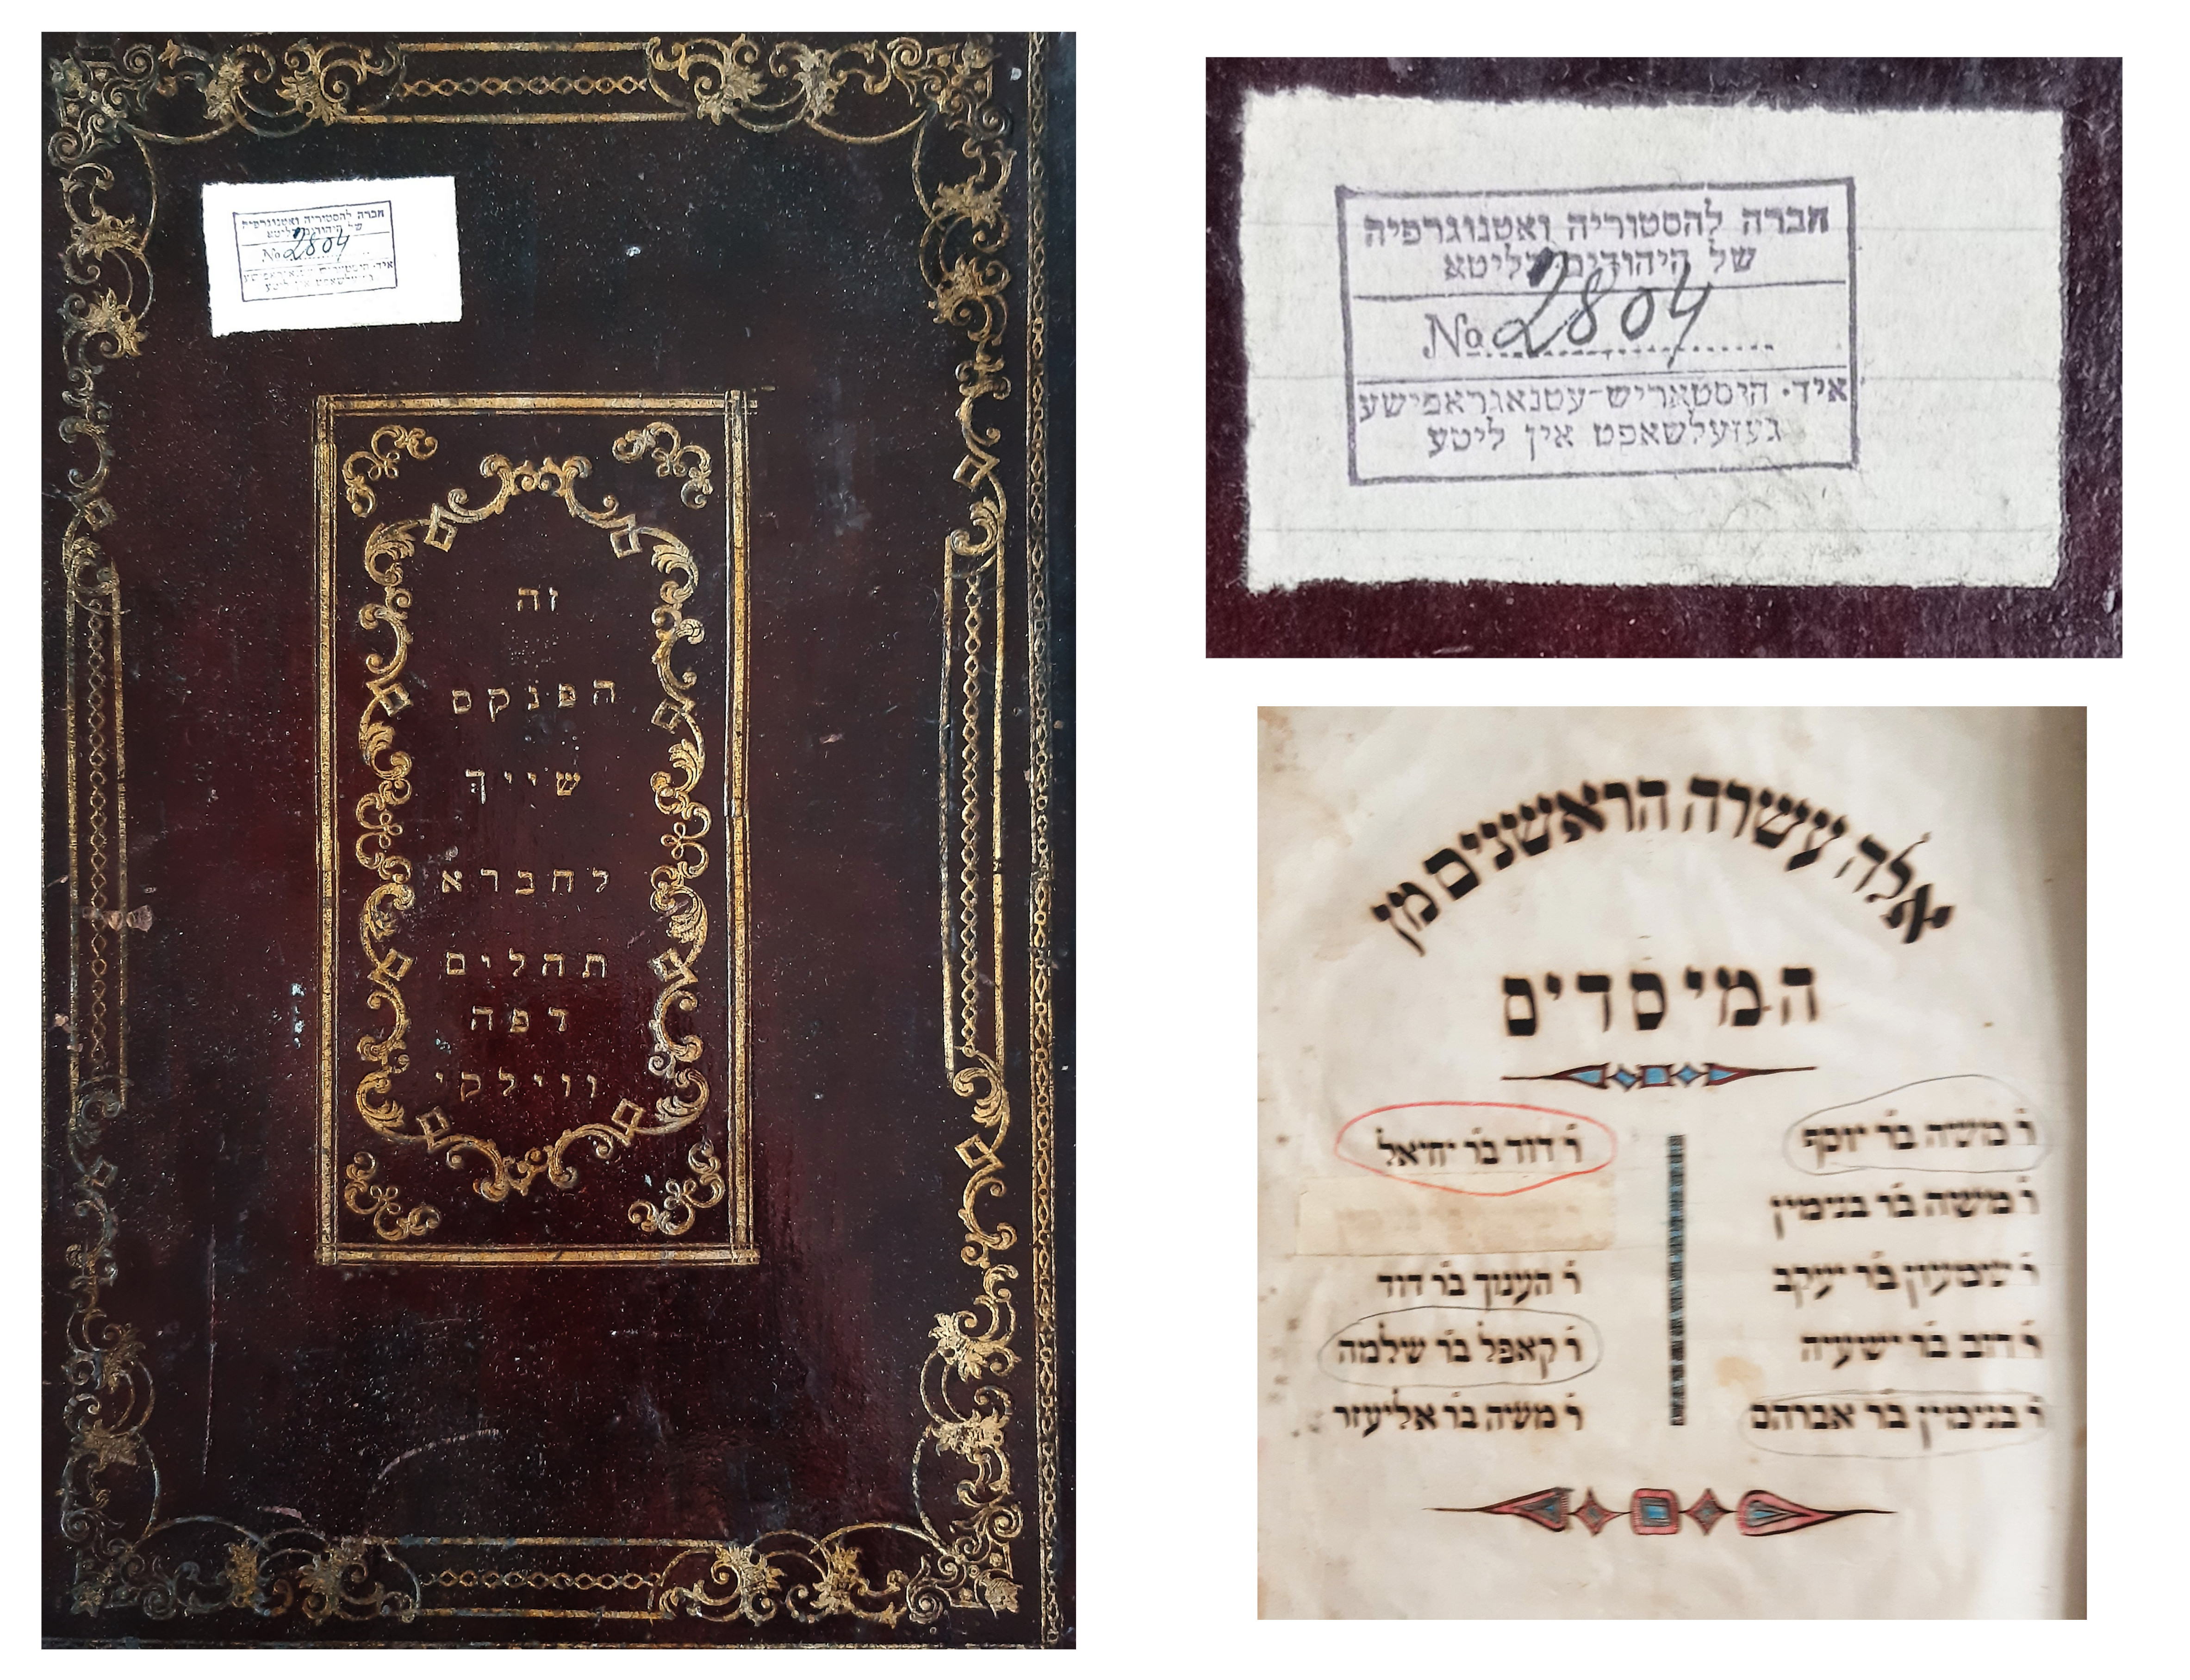 חברה להסטוריה ואטנוגרפיה
של היהודים בליטא
No 2804
איד. היסטאריש-עטנאגראפישע
געזעלשאפט אין ליטע
זה
הפנקס
שייך
לחברא
תהלים
דפה
ווילקי
חברה להסטוריה ואטנוגרפיה
של היהודים בליטא
No 2804
איד. היסטאריש-עטנאגראפישע
געזעלשאפט אין ליטע
אלה עשרה הראשנים מן
המיסדים
ר׳ משה בר׳ יוסף
ר׳ משה בר׳ בנימין
ר׳ שמעון בר׳ יעקב
ר׳ דוב בר׳ ישעיה
ר׳ בנימין בר׳ אברהם
ר׳ דוד בר׳ יחיאל
ר׳ הענוך בר׳ דוד
ר׳ קאפל בר׳ שלמה
ר׳ משה בר׳ אליעזר